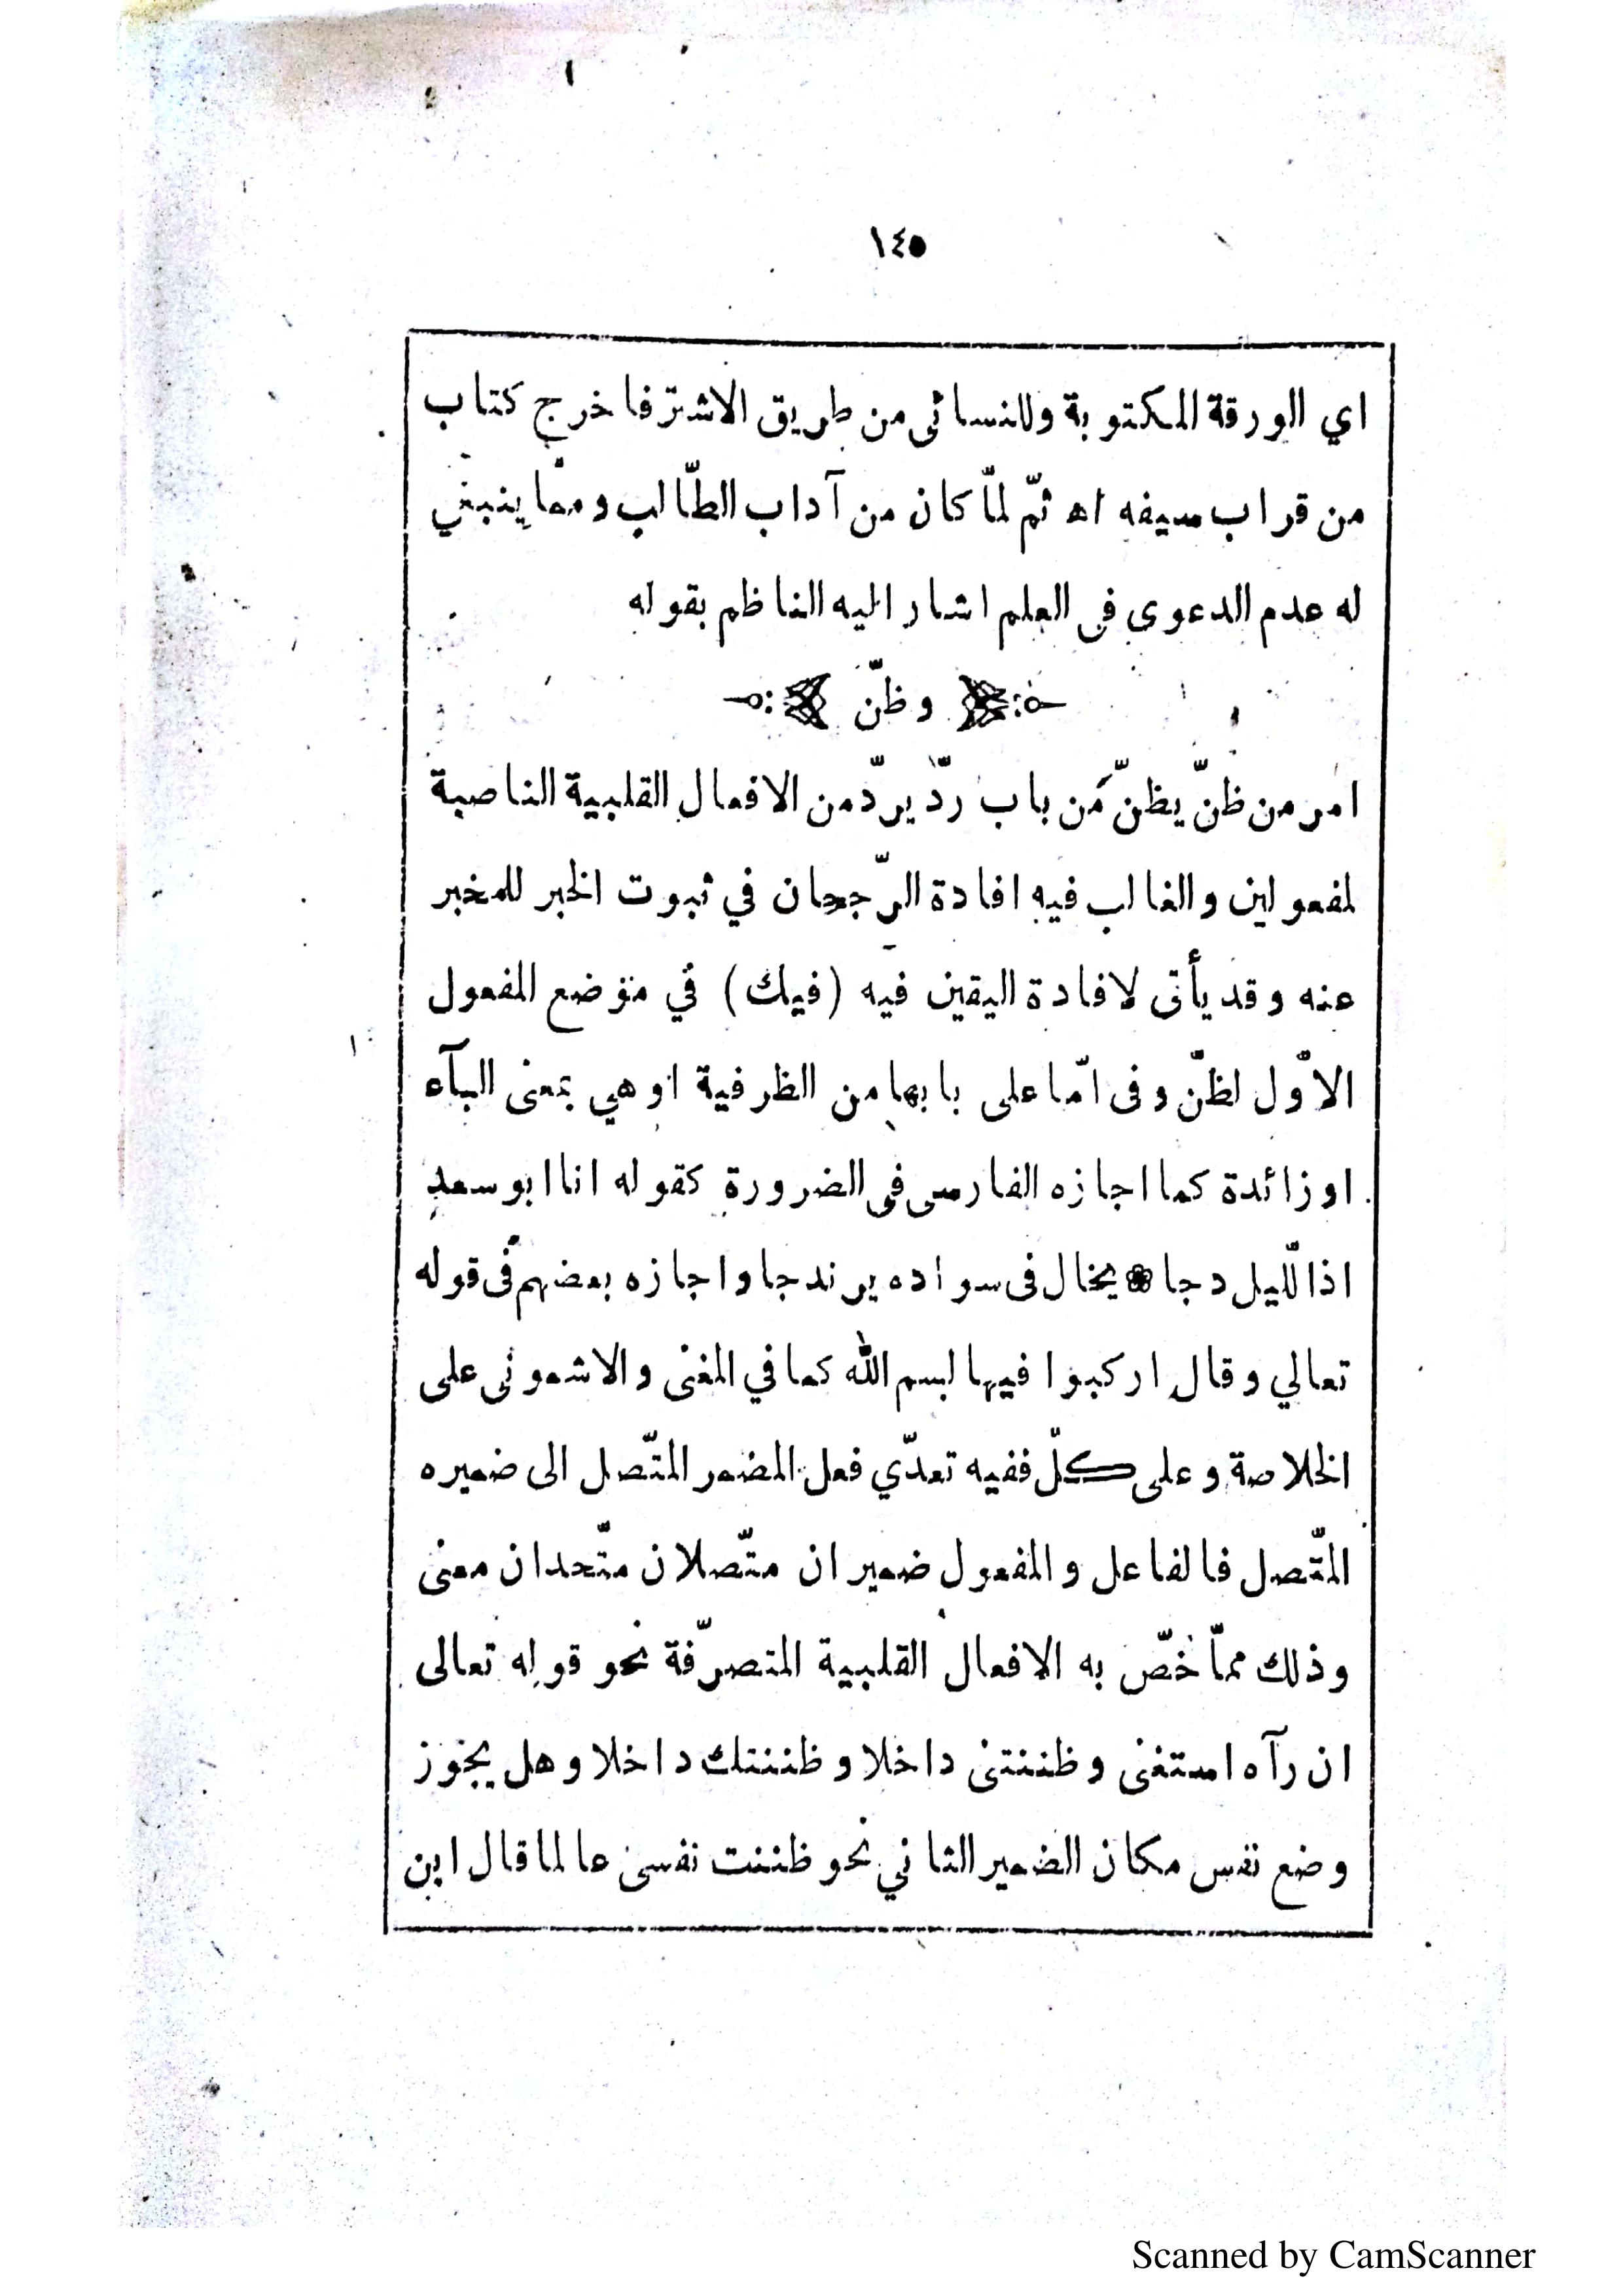 ١٤٥
اي الورقة المكتوبة وللنسائى من طريق الاشتر فاخرج كتاب
من قراب سيفه اه ثمّ لمّا كان من آداب الطّالب وممّا ينبغي
له عدم الدعوى فى العلم اشار اليه الناظم بقوله
وظنّ
امر من ظنّ يظنّ من باب ردّ يردّ من الافعال القلبية الناصبة
لمفعولين والغالب فيه افادة الرّجحان في ثبوت الخبر للمخبر
عنه وقد يأتى لافادة اليقين فيه (فيك) في موضع المفعول
الاوّل لظنّ وفى امّا على بابها من الظرفية او هي بمعنى البآء
او زائدة كما اجازه الفارسى فى الضرورة كقوله انا ابو سعد
اذا لّليل دجا ❁ يخال فى سواده يرندجا واجازه بعضهم فى قوله
تعالي وقال اركبوا فيها لبسم الله كما في المغنى والاشمونى على
الخلاصة وعلى كلّ ففيه تعدّي فعل المضمر المتّصل الى ضميره
المتّصل فالفاعل والمفعول ضميران متّصلان متّحدان معنى
وذلك ممّا خصّ به الافعال القلبية المتصرّفة نحو قوله تعالى
ان رآه استغنى وظننتنى داخلا وظننتك داخلا وهل يجوز
وضع نفس مكان الضمير الثاني نحو ظننت نفسى عالما قال ابن
Scanned by CamScanner